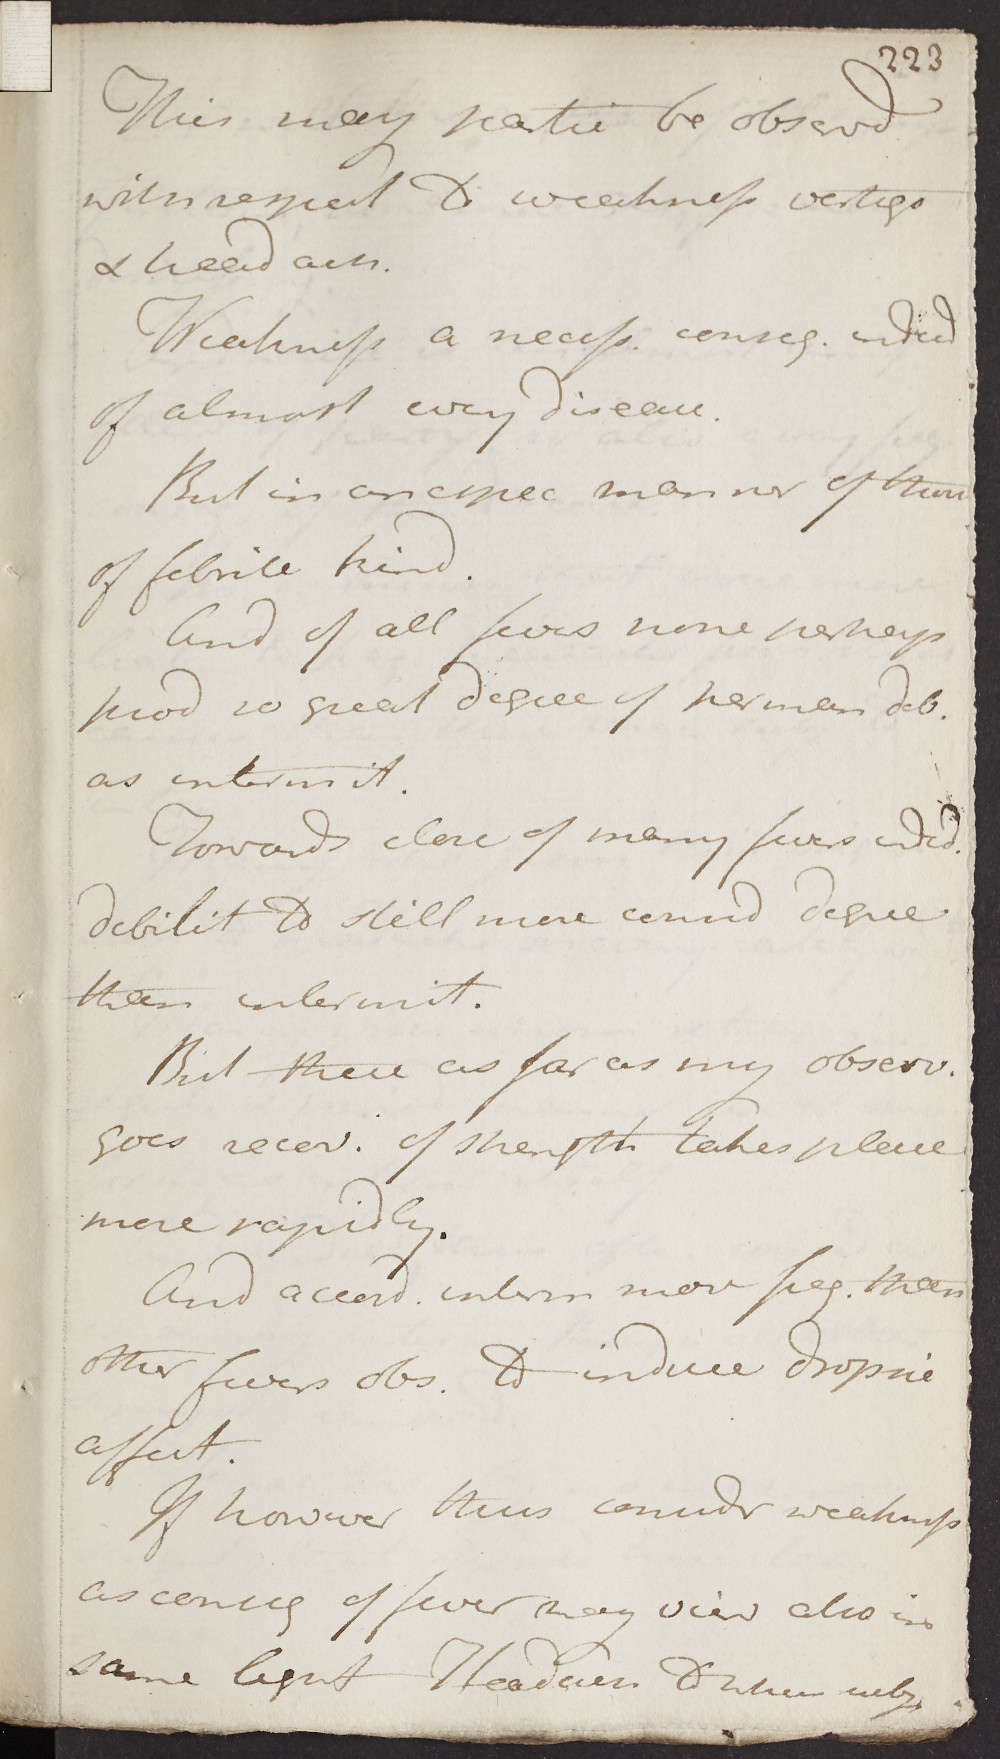 223
This may partic be observd
with respect to weakness vertigo
& head ach.
Weakness a necess. conseq. indeed
of almost every disease.
But in an espec manner of those
of febrile kind.
And of all fevers none perhaps
prod so great degree of perman deb.
as intermit.
Towards close of many fevers indeed.
debilit to still more consid degree
than intermit.
But there as far as my observ.
goes recov. of strength takes place
more rapidly.
And accord. interm more freq. than
other fevers obs. to induce dropsic
affect.
If however thus considr weakness
as conseq of fever may view also in
same light Headach to when